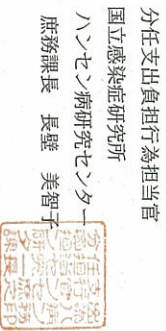 分任支出負担行為担当官
国立感染症研究所
ハンセン病研究センター
庶務課長　長壁　美智子